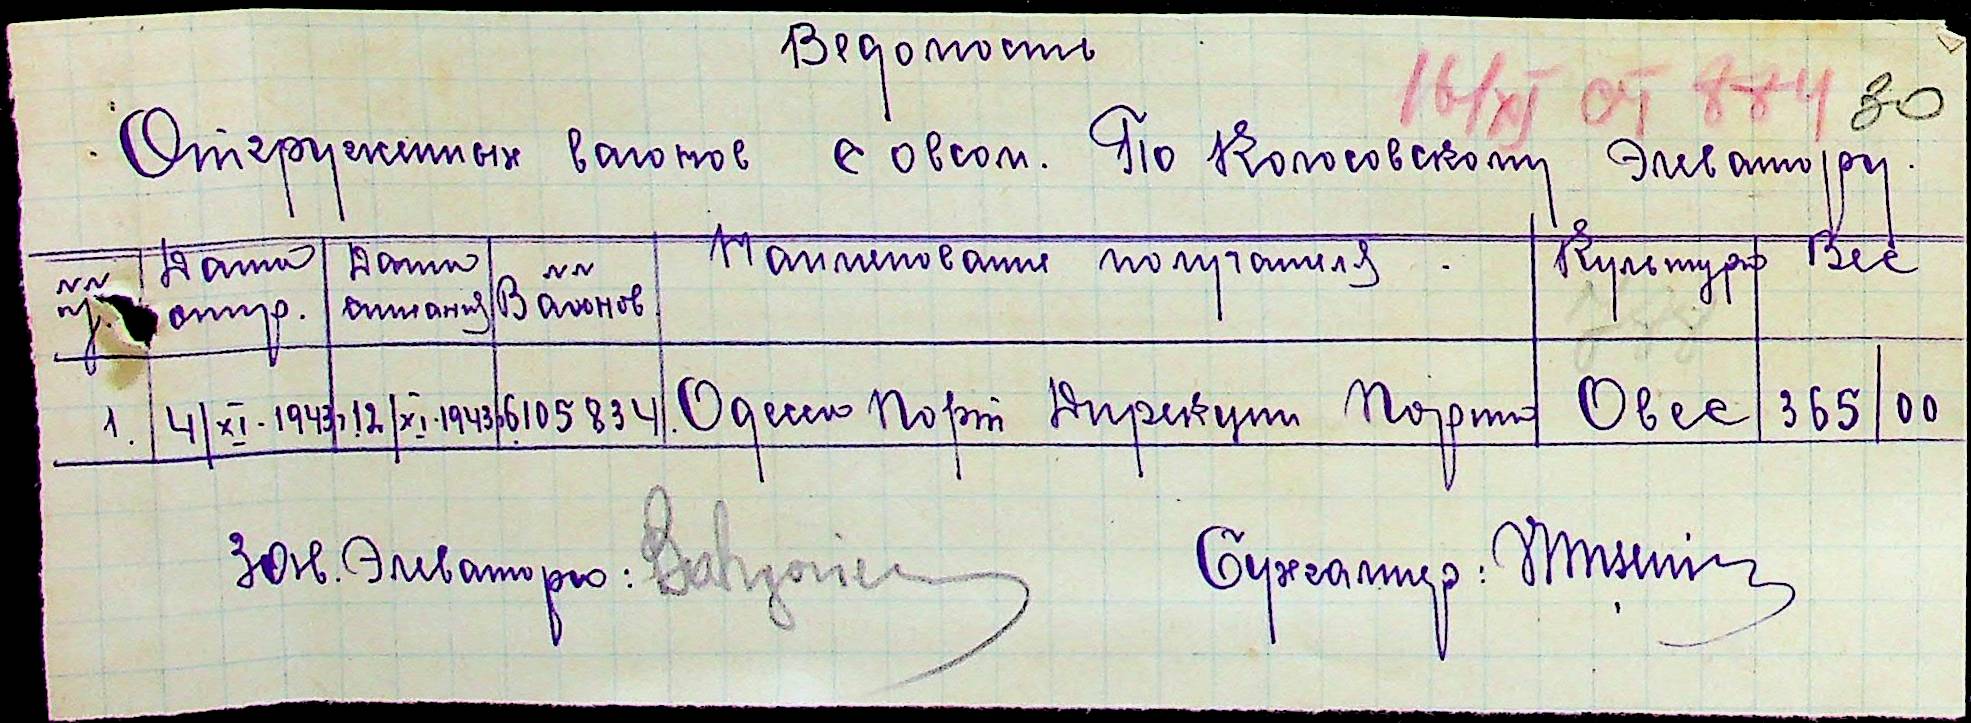 Ведомость
16/XI от 884 30
Отгруженных вагонов с овсом. По Колосовскому Элеватору.
№№ п/. Дата отгр. Дата Вагонов №№ Наименование получателя. Культура Вес
1. 4/XI-1943 12/XI-1943 6105834 Одесса Порт Дирекции Порта Овес 365/00
Зав. Элеватора: Бухгалтер: